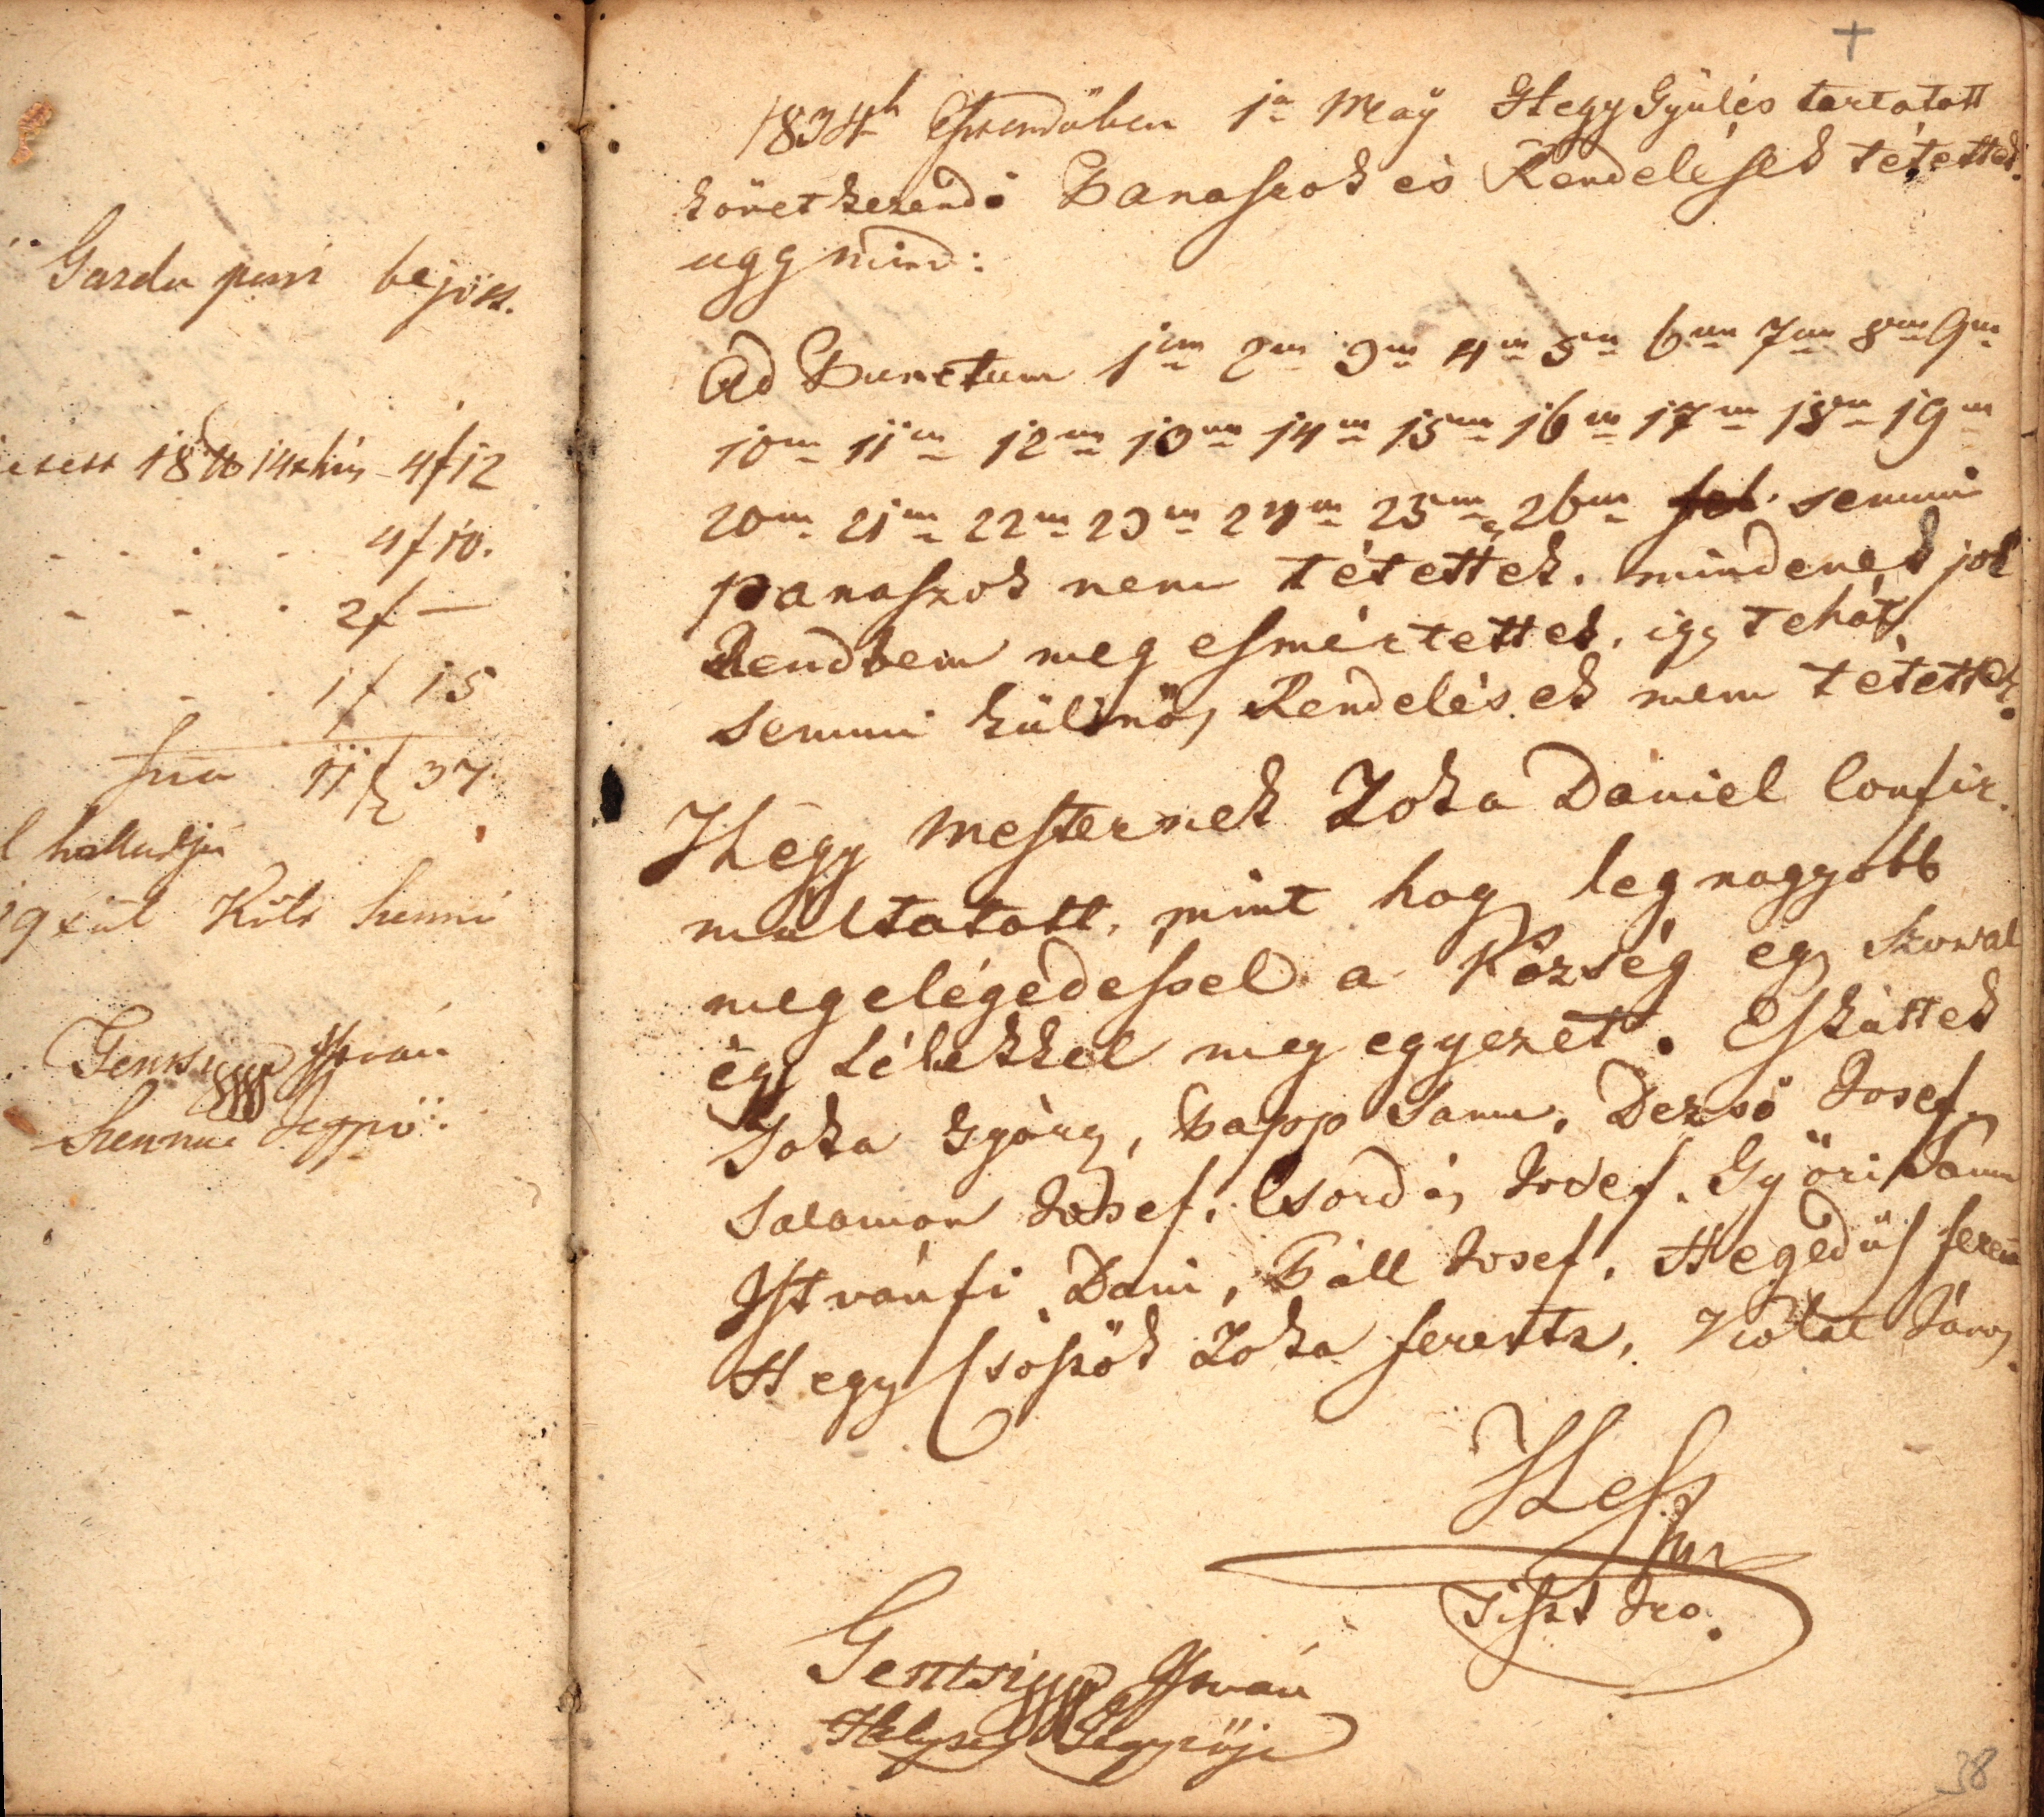 Gazda
bejött.
18 14 4f12
4f10.
2f —
1f 15
Sma 11f 37
hallattya
István
Jegyző
+
1834k Esztendőben 1a Maÿ Hegy Gyülés tartatott
következendő Panaszok és Rendelések tétettek.
ugg mind:
Ad Punctum 1um 2um 3um 4um 5um 6um 7um 8um 9um
10um 11um 12um 13um 14um 15um 16um 17um 18um 19um
20um 21um 22um 23um 24um 25um 26um semmi
panaszok nem tétettek. mindenek jól
Rendbem meg esmértettek, igy tehát
semmi külinös Rendelések nem tétettek.
Hegy Mesternek Zoka Dániel Confir-
máltatott, mint hog leg nagyobb
megelégedéssel a Község egy Szoval
égy Lélekkel meg egyezet. Esküttek
Joka György, Papp Samu, Dezső Josef,
Salamon Josef, Csordás Josef. Győri Samu
Istvánfi Dani, Páll Josef, Hegedüs ferentz
Hegy Csőszök Zoka ferentz, János.
Hess
Tiszt Iro.
Gentsi István
Helység Jegyzője
38